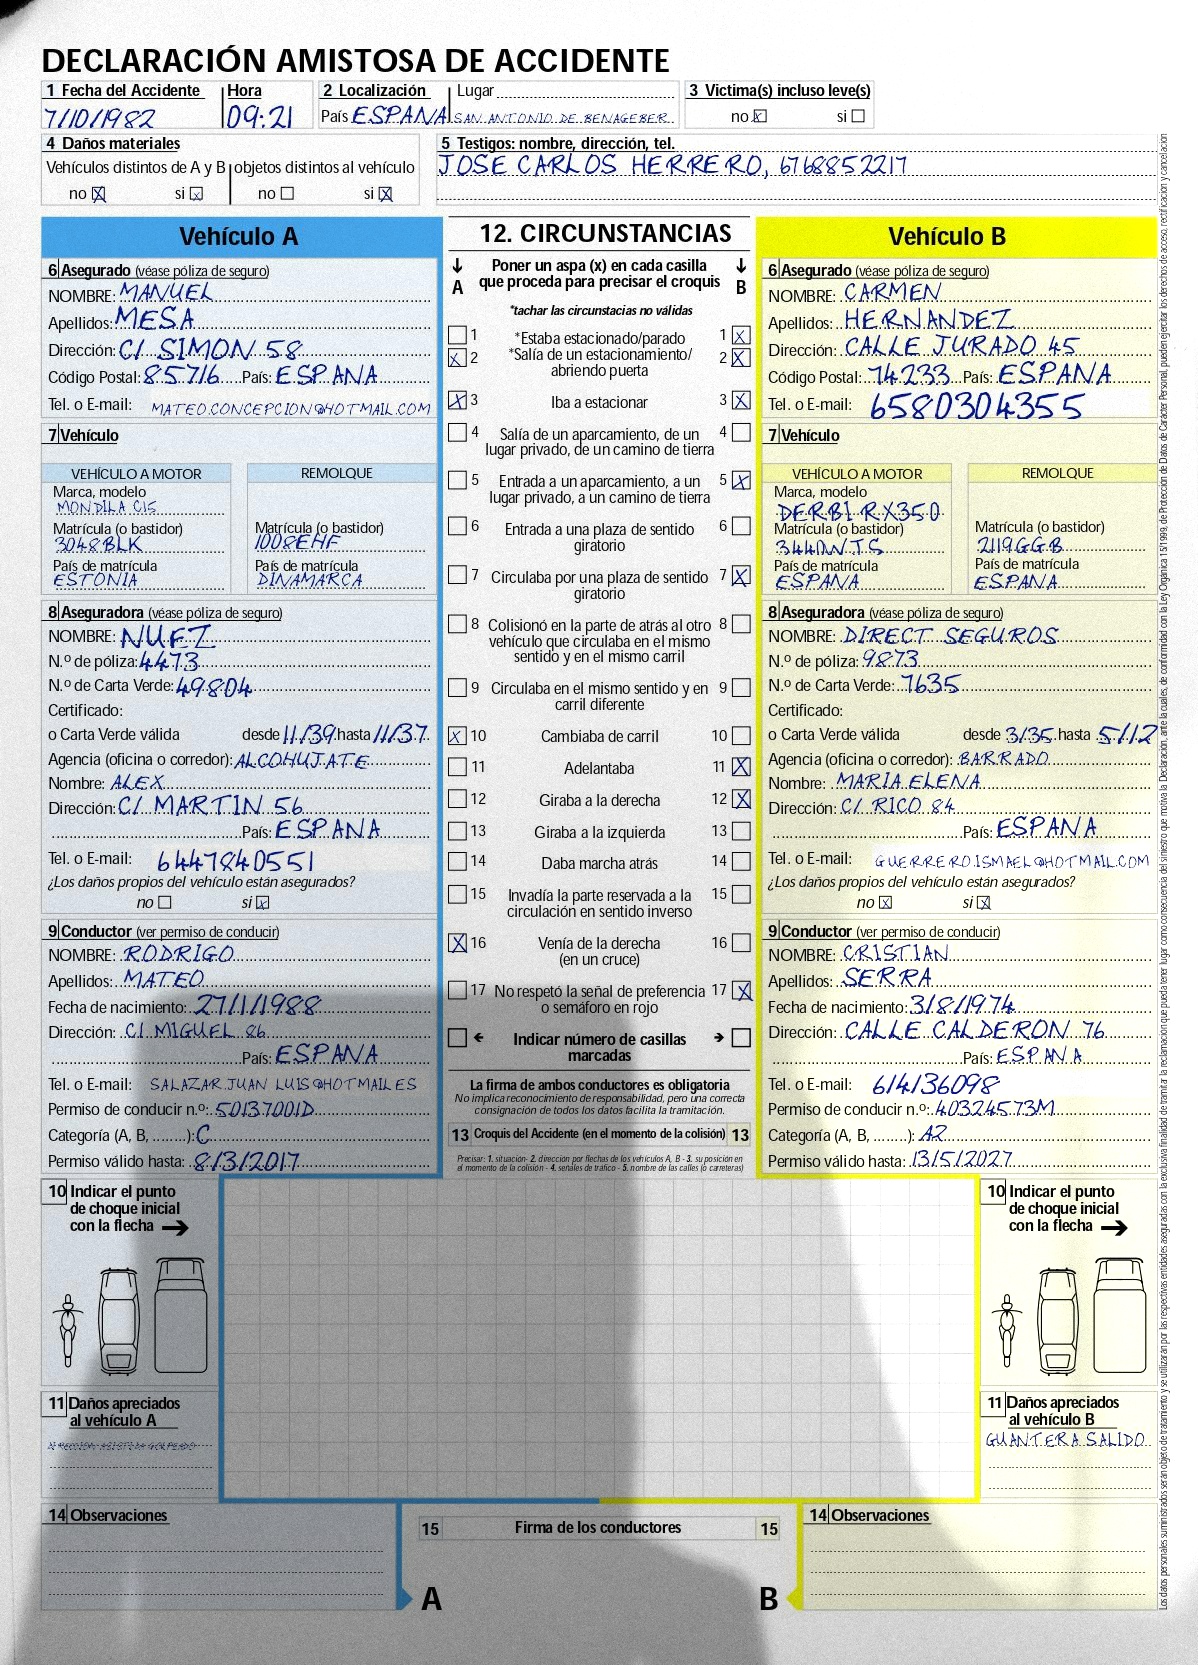 DECLARACIÓN AMISTOSA DE ACCIDENTE
1 Fecha del Accidente Hora 2 Localización Lugar 3 Victima(s) incluso leve(s)
7/10/1982 09:21 País ESPANA SAN ANTONIO DE BENAGEBER no X si
4 Daños materiales
Vehículos distintos de A y B objetos distintos al vehículo
no X si X no si X
5 Testigos: nombre, dirección, tel.
JOSE CARLOS HERRERO, 6768852217
Vehículo A
6 Asegurado (véase póliza de seguro)
NOMBRE: MANUEL
Apellidos: MESA
Dirección: C/ SIMON 58
Código Postal: 85716 País: ESPANA
Tel. o E-mail: MATEO.CONCEPCION@HOTMAIL.COM
7 Vehículo
VEHÍCULO A MOTOR REMOLQUE
Marca, modelo
MONDILA C15
Matrícula (o bastidor) Matrícula (o bastidor)
3048BLK 1008EHF
País de matrícula País de matrícula
ESTONIA DINAMARCA
8 Aseguradora (véase póliza de seguro)
NOMBRE: NUEZ
N.º de póliza: 4473
N.º de Carta Verde: 49804
Certificado:
o Carta Verde válida desde 11/39 hasta 11/37
Agencia (oficina o corredor): ALCOHUJATE
Nombre: ALEX
Dirección: C/ MARTIN 56
País: ESPANA
Tel. o E-mail: 6447840551
¿Los daños propios del vehículo están asegurados?
no si X
9 Conductor (ver permiso de conducir)
NOMBRE: RODRIGO
Apellidos: MATEO
Fecha de nacimiento: 27/1/1988
Dirección: C/ MIGUEL 86
País: ESPANA
Tel. o E-mail: SALAZAR.JUAN LUIS@HOTMAIL.ES
Permiso de conducir n.º: 50137001D
Categoría (A, B, ........): C
Permiso válido hasta: 8/3/2017
12. CIRCUNSTANCIAS
Poner un aspa (x) en cada casilla
que proceda para precisar el croquis
A B
*tachar las circunstacias no válidas
1 *Estaba estacionado/parado 1 X
X 2 *Salía de un estacionamiento/ 2 X
abriendo puerta
X 3 Iba a estacionar 3 X
4 Salía de un aparcamiento, de un 4
lugar privado, de un camino de tierra
5 Entrada a un aparcamiento, a un 5 X
lugar privado, a un camino de tierra
6 Entrada a una plaza de sentido 6
giratorio
7 Circulaba por una plaza de sentido 7 X
giratorio
8 Colisionó en la parte de atrás al otro 8
vehículo que circulaba en el mismo
sentido y en el mismo carril
9 Circulaba en el mismo sentido y en 9
carril diferente
X 10 Cambiaba de carril 10
11 Adelantaba 11 X
12 Giraba a la derecha 12 X
13 Giraba a la izquierda 13
14 Daba marcha atrás 14
15 Invadía la parte reservada a la 15
circulación en sentido inverso
X 16 Venía de la derecha 16
(en un cruce)
17 No respetó la señal de preferencia 17 X
o semáforo en rojo
Indicar número de casillas
marcadas
La firma de ambos conductores es obligatoria
No implica reconocimiento de responsabilidad, pero una correcta
consignación de todos los datos facilita la tramitación.
13 Croquis del Accidente (en el momento de la colisión) 13
Precisar: 1. situación- 2. dirección por flechas de los vehículos A, B - 3. su posición en
el momento de la colisión - 4. señales de tráfico - 5. nombre de las calles (o carreteras)
Vehículo B
6 Asegurado (véase póliza de seguro)
NOMBRE: CARMEN
Apellidos: HERNANDEZ
Dirección: CALLE JURADO 45
Código Postal: 74233 País: ESPANA
Tel. o E-mail: 6580304355
7 Vehículo
VEHÍCULO A MOTOR REMOLQUE
Marca, modelo
DERBI RX350
Matrícula (o bastidor) Matrícula (o bastidor)
3440WTS 2119GGB
País de matrícula País de matrícula
ESPANA ESPANA
8 Aseguradora (véase póliza de seguro)
NOMBRE: DIRECT SEGUROS
N.º de póliza: 9873
N.º de Carta Verde: 7635
Certificado:
o Carta Verde válida desde 3/35 hasta 5/12
Agencia (oficina o corredor): BARRADO
Nombre: MARIA ELENA
Dirección: C/ RICO 84
País: ESPANA
Tel. o E-mail: GUERRERO.ISMAEL@HOTMAIL.COM
¿Los daños propios del vehículo están asegurados?
no X si X
9 Conductor (ver permiso de conducir)
NOMBRE: CRISTIAN
Apellidos: SERRA
Fecha de nacimiento: 3/8/1974
Dirección: CALLE CALDERON 76
País: ESPANA
Tel. o E-mail: 614136098
Permiso de conducir n.º: 40324573M
Categoría (A, B, ........): A2
Permiso válido hasta: 13/5/2027
10 Indicar el punto
de choque inicial
con la flecha
11 Daños apreciados
al vehículo A
10 Indicar el punto
de choque inicial
con la flecha
11 Daños apreciados
al vehículo B
GUANTERA SALIDO
14 Observaciones
15 Firma de los conductores 15
A B
14 Observaciones
Los datos personales suministrados serán objeto de tratamiento y se utilizaran por las respectivas entidades aseguradas con la exclusiva finalidad de tramitar la reclamación que pueda tener lugar como consecuencia del siniestro que motiva la Declaración, ante la cuales, de conformidad con la Ley Organica 15/1999, de Protección de Datos de Carácter Personal, pueden ejercitar los derechos de acceso, rectificación y cancelación